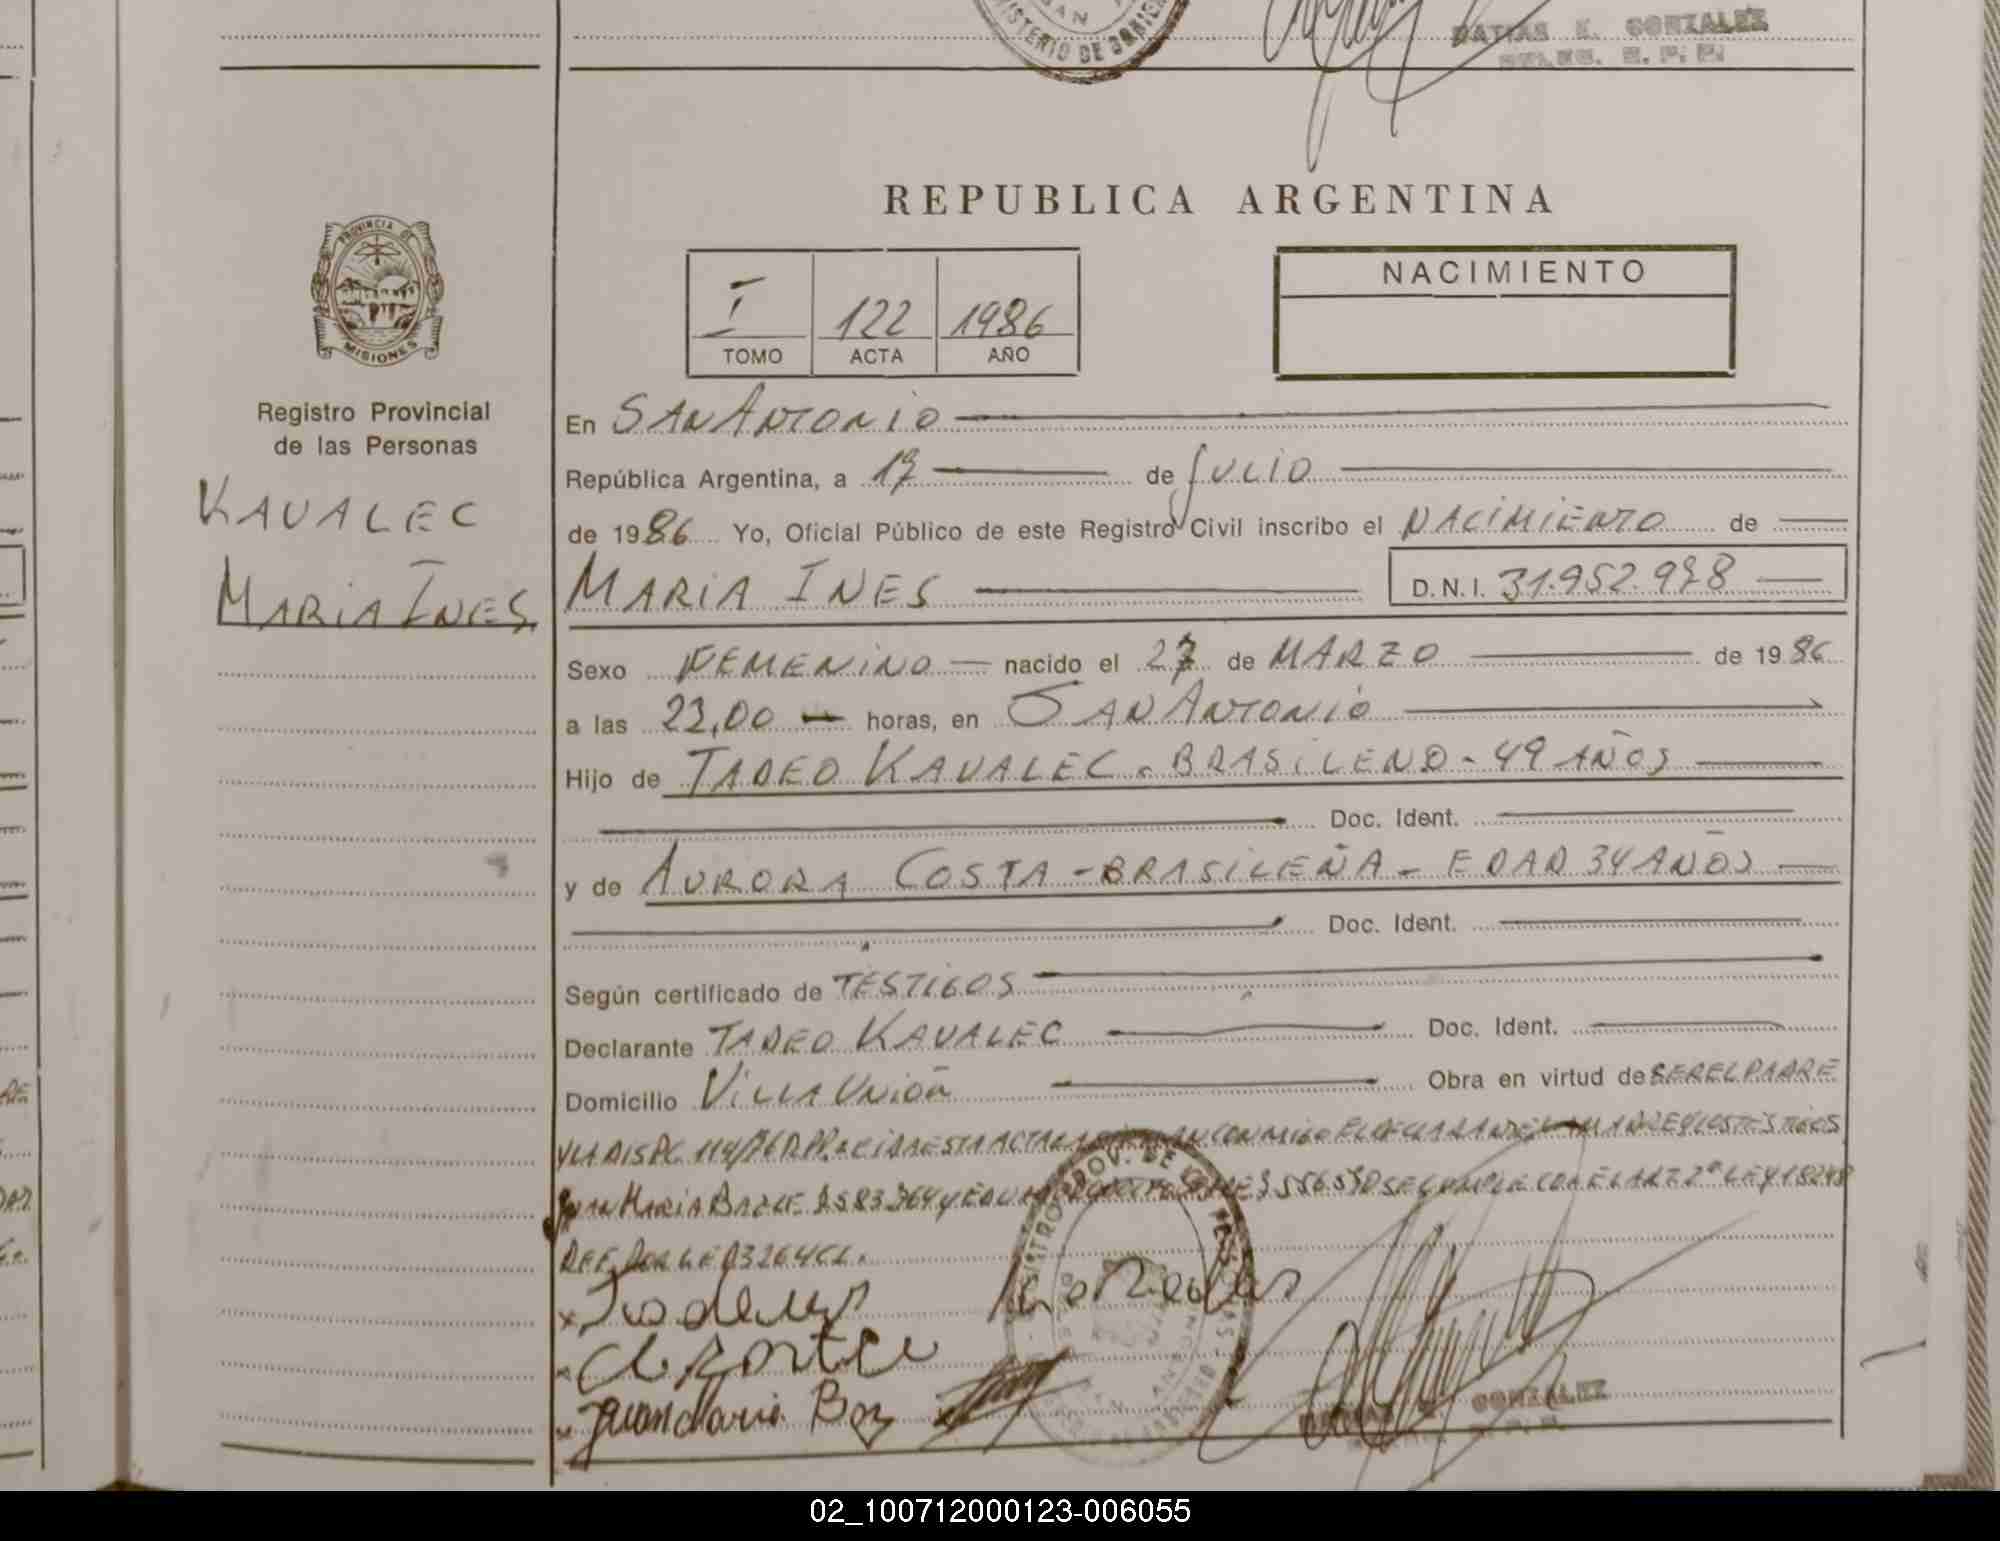 MINISTERIO DE GOBIER
MATIAS E. GONZALEZ
REPUBLICA ARGENTINA
PROVINCIA DE
MISIONES
Registro Provincial
de las Personas
KAVALEC
MARIA INES
I 122 1986
TOMO ACTA AÑO
NACIMIENTO
En SAN ANTONIO
República Argentina, a 17 de JULIO
de 1986 Yo, Oficial Público de este Registro Civil inscribo el NACIMIENTO de
MARIA INES D.N.I. 31.952.978
Sexo FEMENINO nacido el 27 de MARZO de 1986
a las 23,00 horas, en SAN ANTONIO
Hijo de TADEO KAVALEC - BRASILENO - 49 AÑOS
Doc. Ident.
y de AURORA COSTA - BRASILEÑA - EDAD 34 AÑOS
Doc. Ident.
Según certificado de TESTIGOS
Declarante TADEO KAVALEC Doc. Ident.
Domicilio VILLA UNIÓN Obra en virtud de SER EL PADRE
Y LA DISPC. 114/76 ESTA ACTA CON MIGO EL DECLARANTE LA MADRE Y LOS TESTIGOS
JUAN MARIA SE CUMPLE CON EL ART 2° LEY 18248
REF. POR LEY
Juan Maria
GONZALEZ
02_100712000123-006055